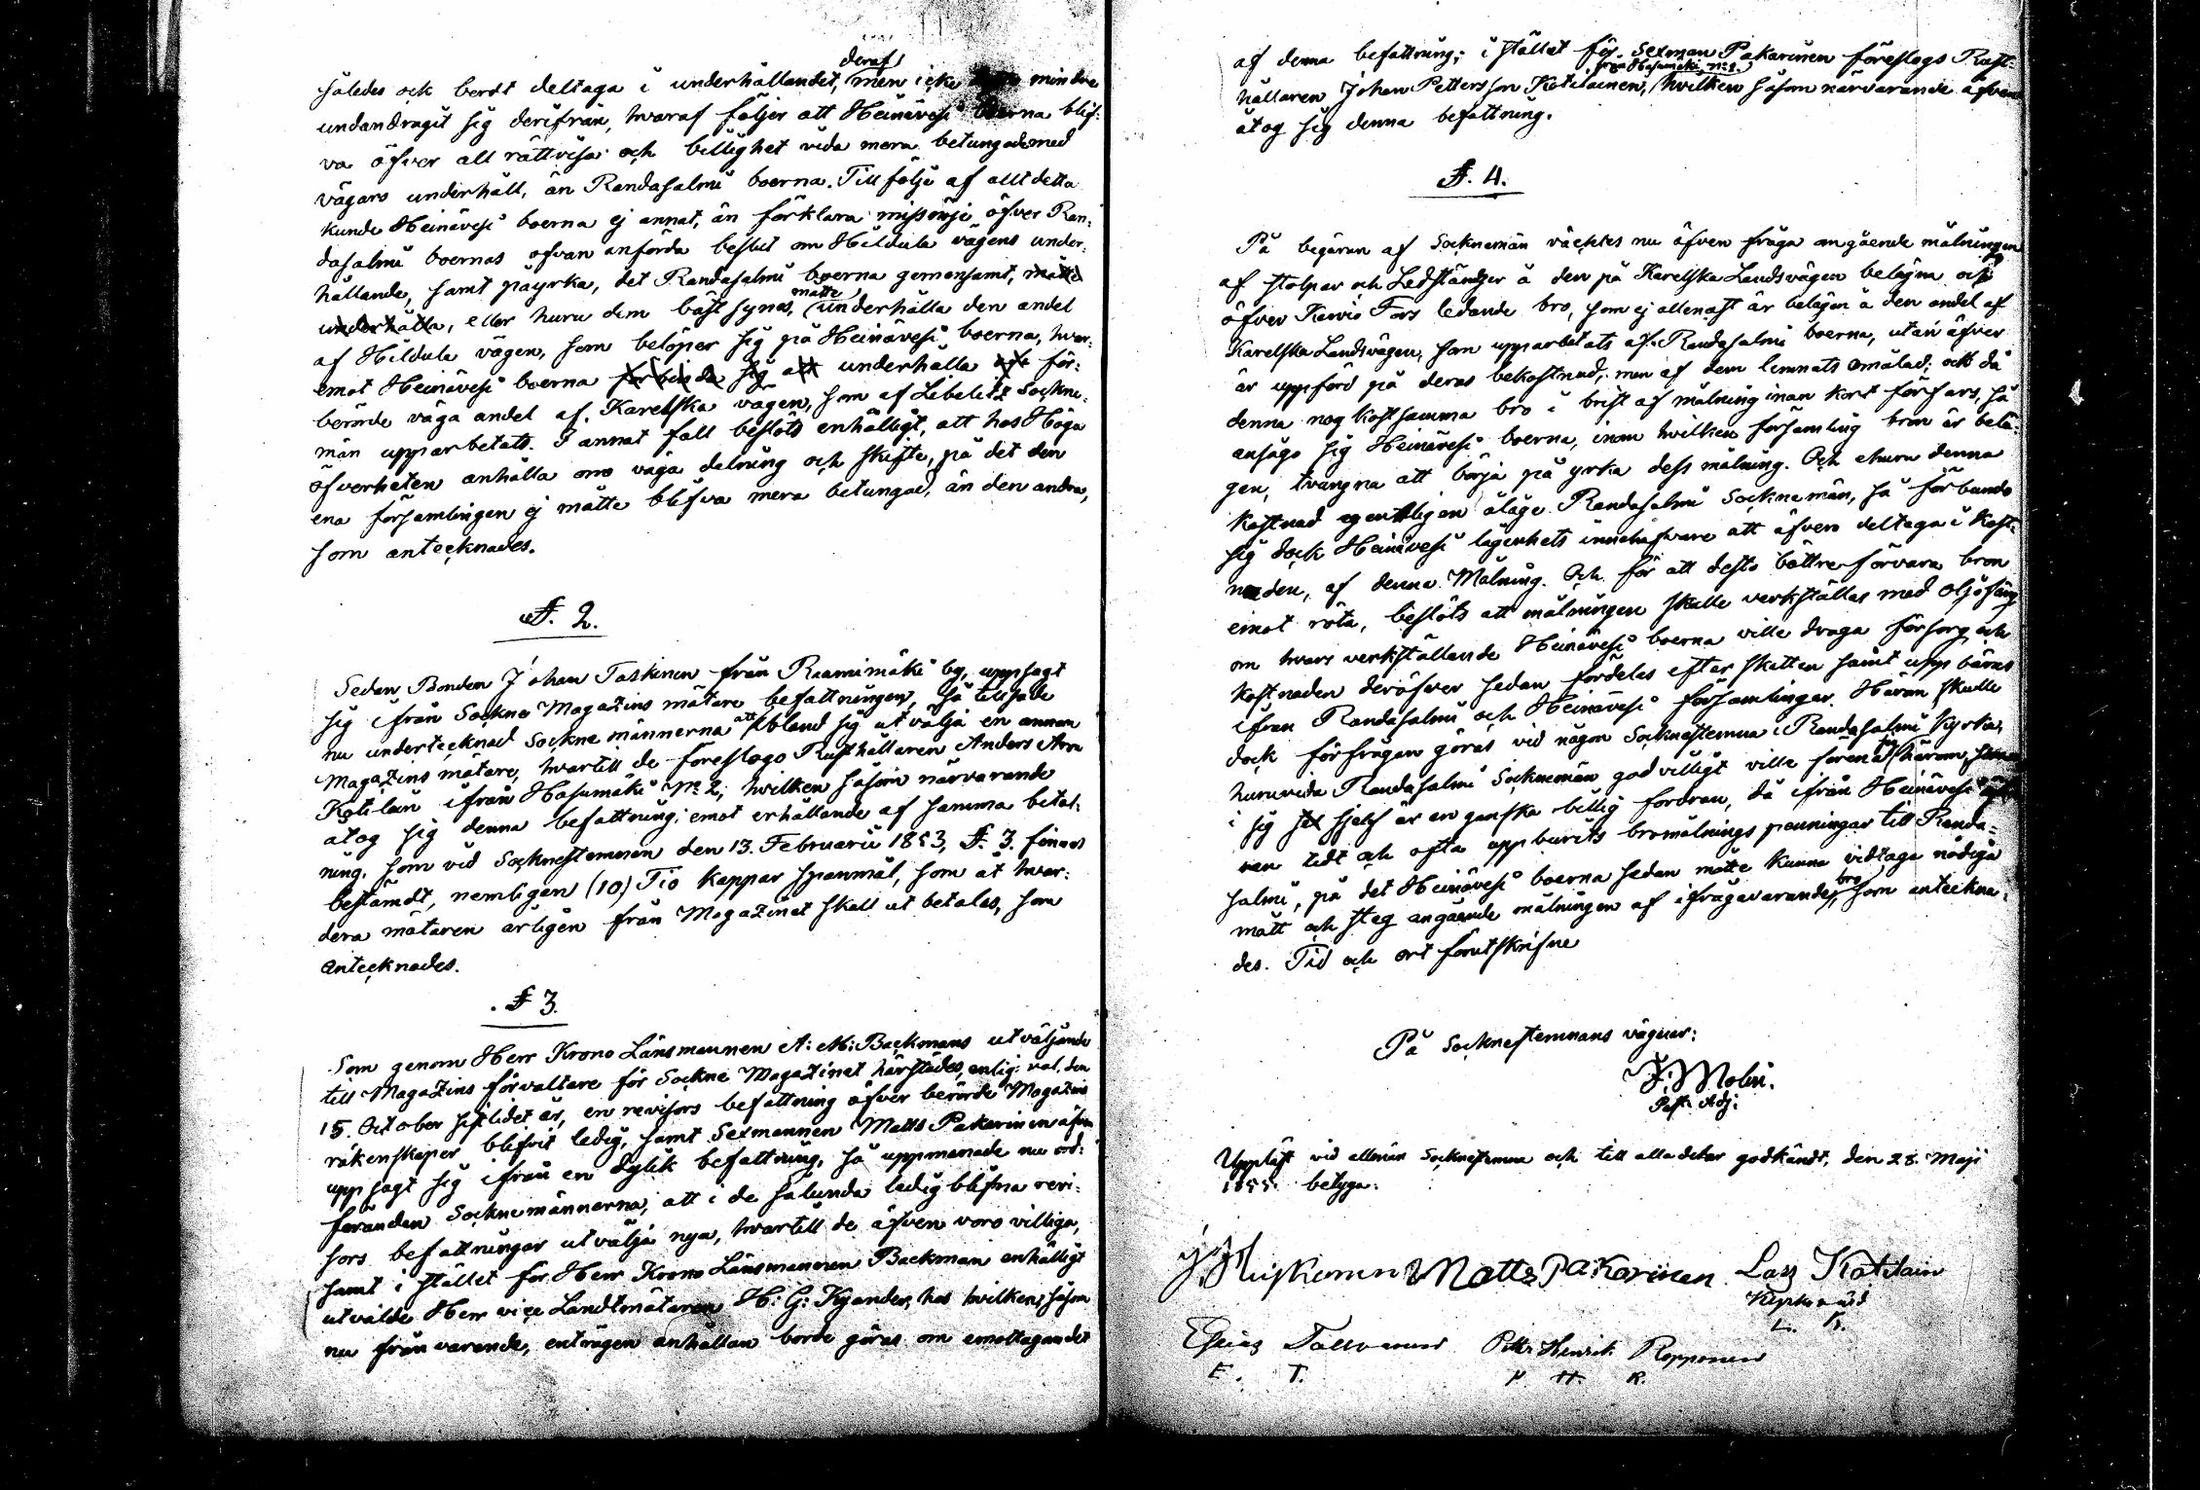 deraf
således ock bordt deltaga i underhållandet, men icke mindre
undandragit sig derifrån, hvaraf följer att Heinävesi boerna blif-
va öfver all rättvisa och billighet vida mera betungade med
vägars underhåll, än Randasalmi boerna. Till följe af allt detta
kunde Heinävesi boerna ej annat, än förklara missnöje öfver Ran-
dasalmi boernas ofvan anförda beslut om Hildula vägens under-
hållande, samt påyrka, det Randasalmi boerna gemensamt, måtte
underhålla, eller huru dem bäst synes, måtte underhålla den andel
af Hildula vägen, som belöper sig på Heinävesi boerna, hvar-
emot Heinävesi boerna förbinda sig att underhålla för-
berörde väga andel af Karelska vägen, som af Libelitz Sockne-
män upparbetats. I annat fall beslöts enhälligt, att hos Höga
öfverheten anhålla om väga delning och skifte, på det den
ena församlingen ej måtte blifva mera betungad, än den andra,
som antecknades.
§. 2.
Sedan Bonden Johan Taskinen från Raamimäki by, uppsagt
sig ifrån Sockne Magazins mätare befattningen, så tillsade
nu undertecknad Sockne männerna att ibland sig utvälja en annan
Magazins mätare, hvartill de föreslogo Rusthållaren Anders Aron
Kotilain ifrån Hasumäki No 2, hvilken såsom närvarande
åtog sig denna befattning, emot erhållande af samma betal-
ning, som vid Socknestemman den 13. Februarii 1853, §. 3. finnes
bestämdt, nemligen (10) Tio kappar spanmål, som åt hvar-
dera mätaren årligen från Magazinet skall utbetalas, som
antecknades.
§ 3.
Som genom Herr Krono Länsmannen A: M: Backmans utväljande
till Magazins förvaltare för Sockne Magazinet härstädes, enlig: val, den
15. October sistlidet år, en revisors befattning öfver berörde Magazins
räkenskaper blifvit ledig, samt Sexmannen Matts Pakarinen äfven
uppsagt sig ifrån en dylik befattning, så uppmanade nu ord-
föranden Sockne männerna, att i de sålunda ledig blifna revi-
sors befattningar utvälja nya, hvartill de äfven voro villiga,
samt i stället för Herr Krono Länsmannen Backman enhälligt
utvalde Herr vice Landtmätaren H: G: Kyander, hos hvilken, såsom
nu frånvarande, enträgen anhållan borde göras om emottagandet
af denna befattning; i stället för Sexman Pakarinen föreslogs Rust-
från Hasumäki No 2.
hållaren Johan Pettersson Kotilainen, hvilken såsom närvarande äfven
åtog sig denna befattning.
§. 4.
På begäran af Socknemän väcktes nu äfven fråga angående målningen
af stolpar och Ledstänger å den på Karelska Landsvägen belägna och
öfver Kerwis Fors ledande bro, som ej allenast är belägen å den andel af
Karelska Landsvägen, som upparbetats af Randasalmi boerna, utan äfver
är uppförd på deras bekostnad, men af dem lemnats omålad; och då
denna nog kostsamma bro i brist af målning inan kort förfars, så
ansågo sig Heinävesi boerna, inom hvilken församling bron är belä-
gen, tvungna att börja på yrka dess målning. Och ehuru denna
kostnad egentligen åläge Randasalmi Socknemän, så förbundo
sig dock Heinävesi lägenhets innehafvare att äfven deltaga i kost-
naden, af denna Målning. Och för att desto bättre förvara bron
emot röta, beslöts att målningen skulle verkställas med oljefärg
om hvars verkställande Heinävesi boerna ville draga försorg och
kostnaden deröfver sedan fördelas efter skatten samt uppbäras
ifrån Randasalmi och Heinävesi församlingar. Härom skulle
dock förfrågan göras vid någon Socknestemma i Randasalmi kyrka,
huruvida Randasalmi Socknemän godvilligt ville förena sig härom, som
i sig sjelf är en ganska billig fordran, då ifrån Heinävesi
ven tidt och ofta uppburits bromålnings penningar till Randa-
salmi, på det Heinävesi boerna sedan måtte kunna vidtaga nödiga
mått och steg angående målningen af ifrågavarande bro, som anteckna-
des. Tid och ort förutskrifne
På Socknestemmans vägnar:
F. J. Molin.
Past: Adj:
Uppläst vid allmän Socknestemma och till alla delar godkändt, den 28. Maji
1855. betyga:
Matts Pakarinen Lars Kotilain
Kyrkovärd
L. K.
Elias Petter Henrik Repponen
E. T. P. H. R.